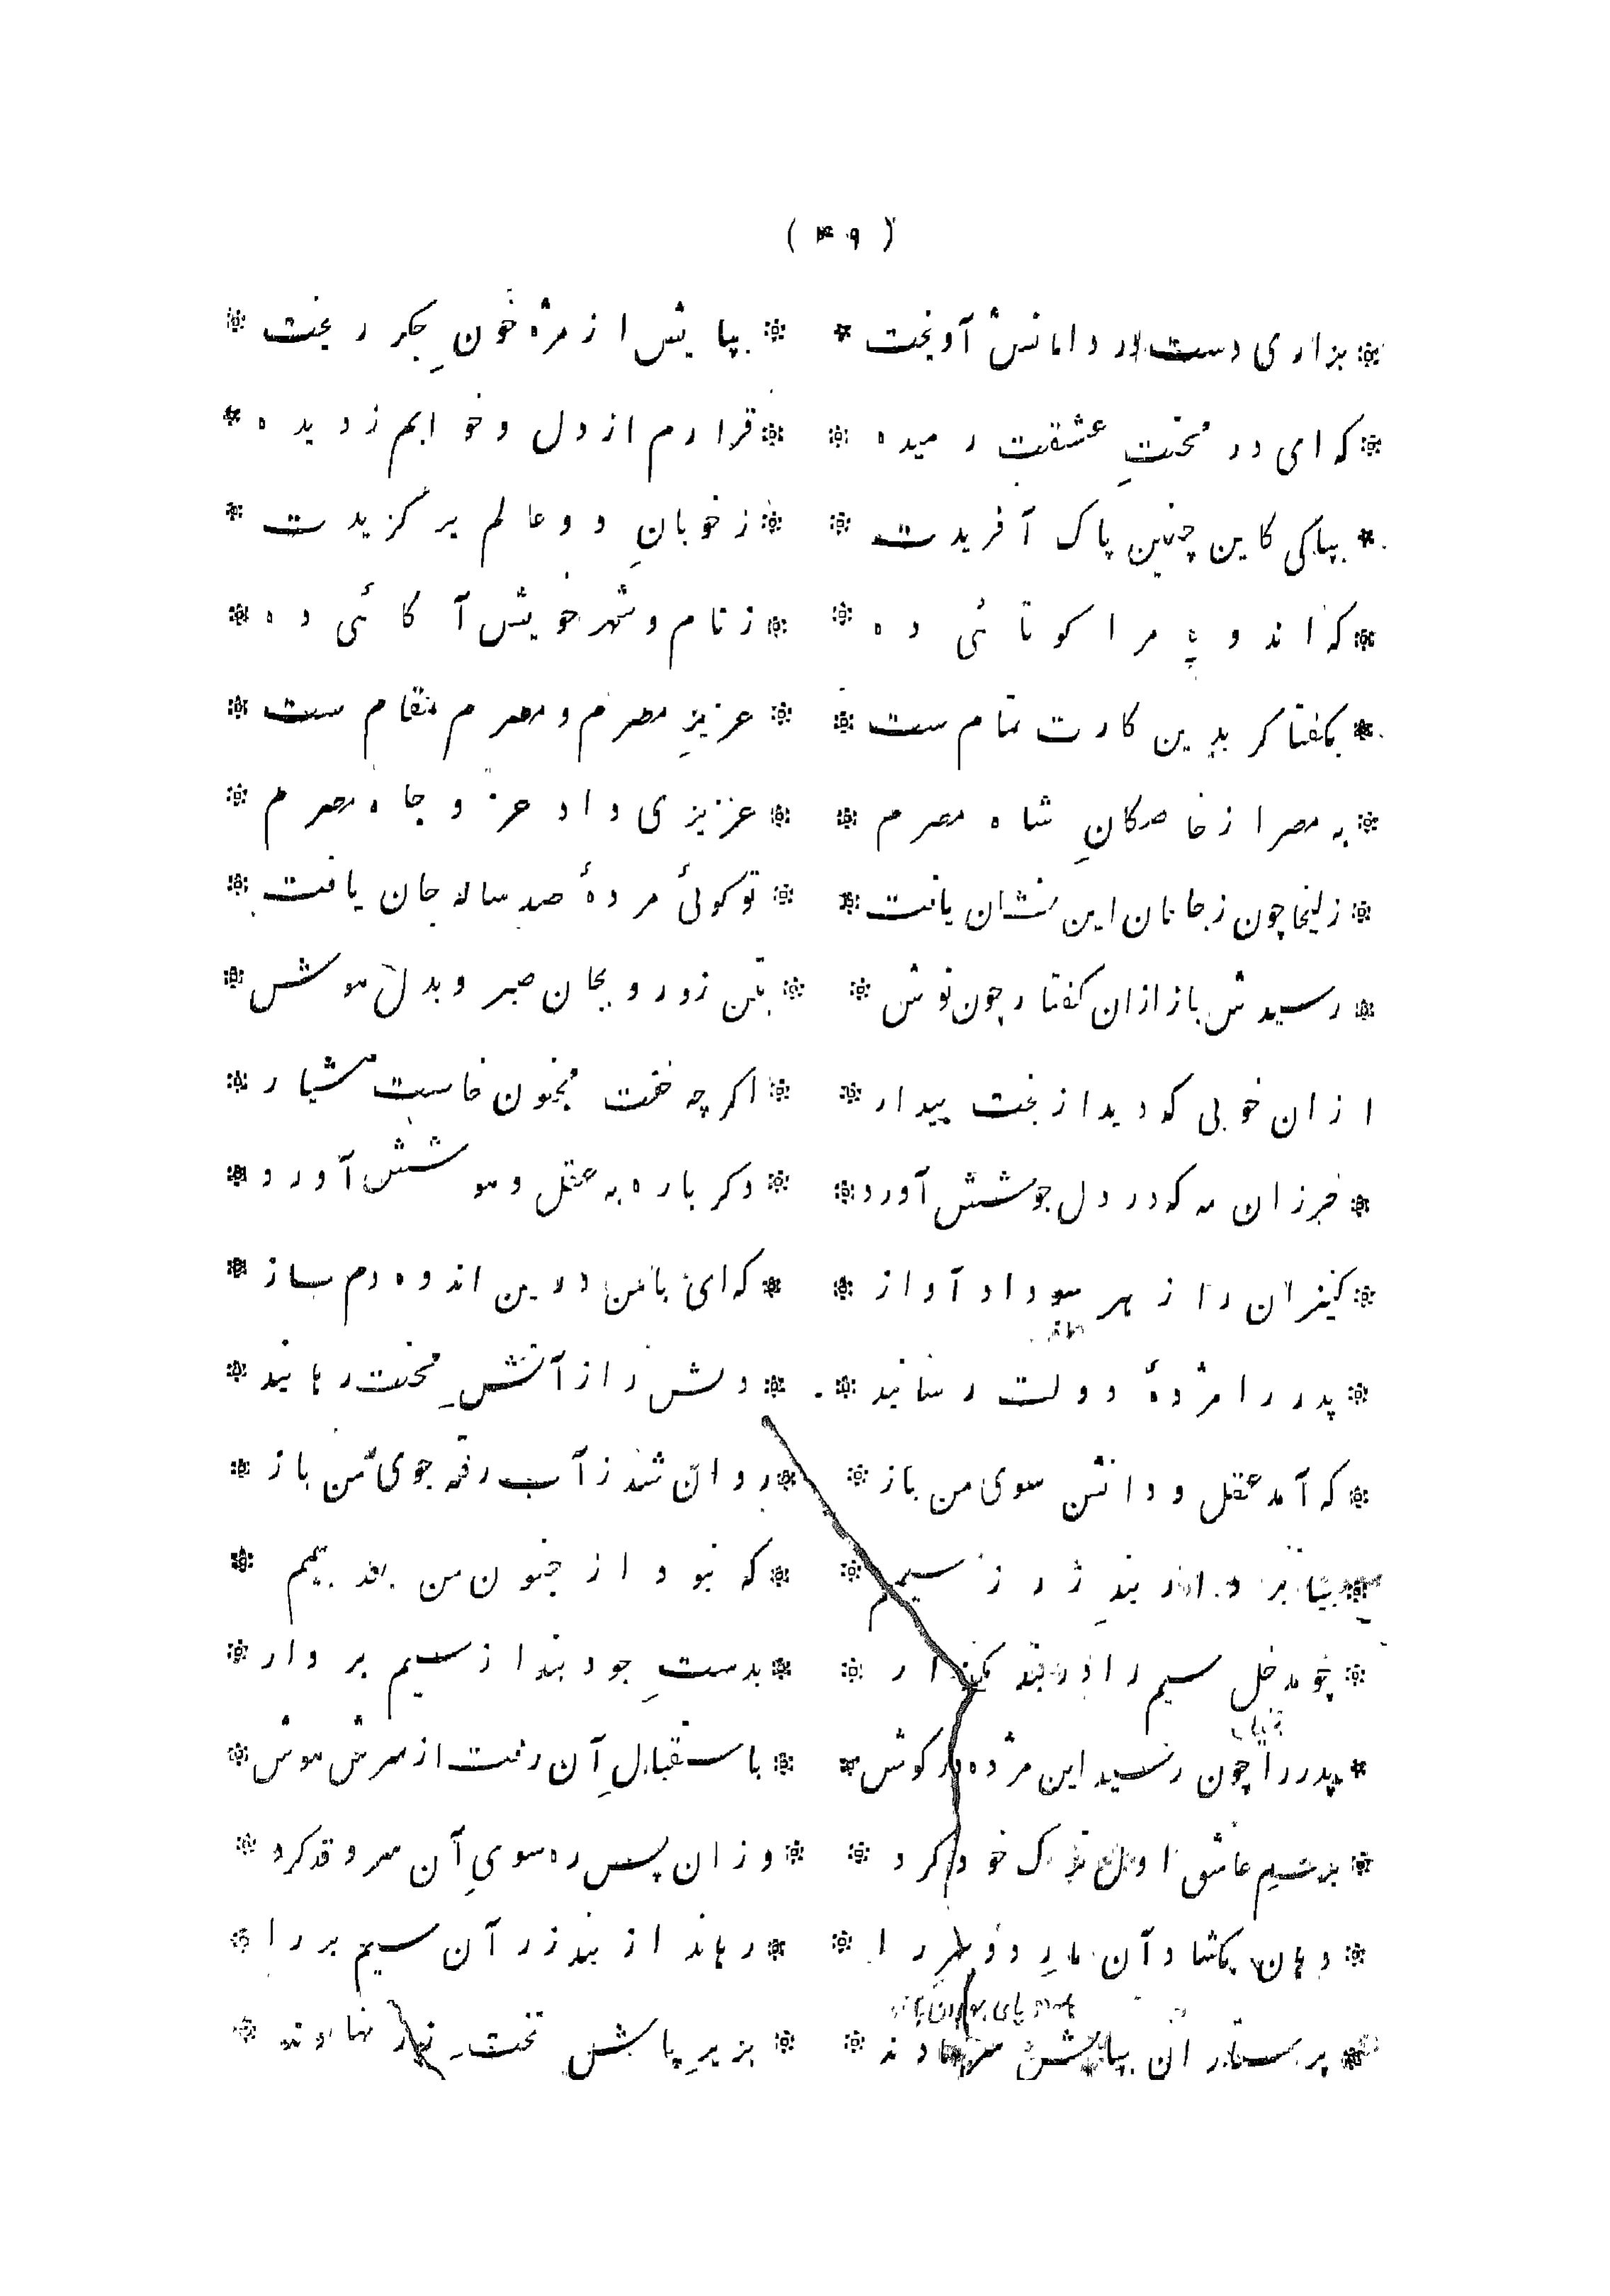 ( ۴۹ )
* بزاری دست در دامانش آویخت * * بپایش از مژه خون جکر ریخت *
* که ای در محنتِ عشقت رمیده * * قرارم از دل و خوابم ز دیده *
* بپاکی کاین چنین پاک آفریدت * * ز خوبانِ دو عالم برکزیدت *
* که اندوهِ مرا کوتائی ده * * ز نام و شهر خویش آکائی ده *
* بکفتا کر بدین کارت تمام ست * * عزیزِ مصرم و مصرم مقام ست *
* به مصر از خاصکانِ شاه مصرم * * عزیزی داد عز و جاه مصرم *
* زلیخا چون ز جانان این نشان یافت * * تو کوئی مردهٔ صد ساله جان یافت
* رسیدش باز ازان کفتار چون نوش * * بتن زور و بجان صبر و بدل هوش *
ازان خوبی که دید از بخت بیدار * * اکرچه خفت مجنون خاست هشیار *
* خبر زان مه که در دل جوشش آورد * * دکر باره به عقل و هوشش آورد *
* کنیزان را ز هر سو داد آواز * * که ای با من درین اندوه دم ساز *
* پدر را مژدهٔ دولت رسانید * * دلش را از آتشِ محنت رهانید *
* که آمد عقل و دانش سوی من باز * * روان شد ز آب رفته جوی من باز *
* بیا بردار بندِ زر ز سیمم * * که نبود از جنون من بعد بیمم *
* چو مدخل سیم را در بند مکذار * * بدستِ جود بند از سیم بردار *
* پدر را چون رسید این مژده در کوش * * باستقبالِ آن رفت از سرش هوش *
* برسمِ عاشق اول ترک خود کرد * * وزان پس ره سویِ آن سرو قد کرد *
* دهان بکشاد آن مارِ دو سر را * * رهاند از بند زر آن سیم بر را *
* پرستاران بپایش سر نهادند * * بزیرِ پاش تختِ زر نهادند *